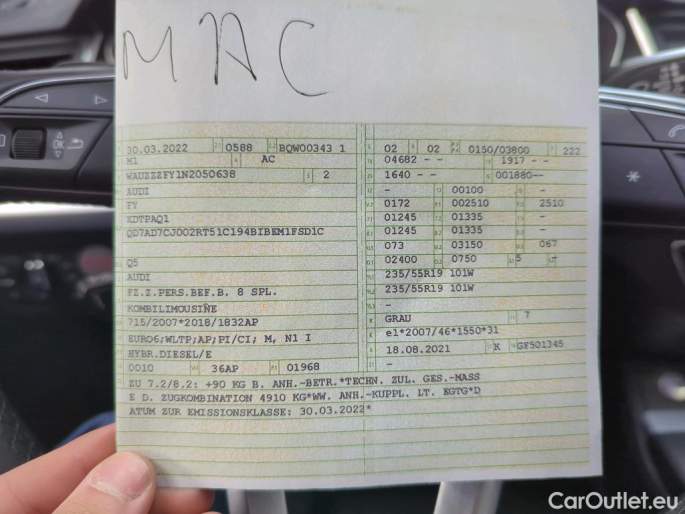 MAC
30.03.2022 0588 BQW00343 1
M1 AC
WAUZZZFY1N2050638 2
AUDI
FY
XDTPAQ1
QD7AD7CJ002RT51C194BIBEM1FSD1C
Q5
AUDI
FZ.Z.PERS.BEF.B. 8 SPL.
KOMBILIMOUSINE
715/2007*2018/1832AP
EURO6;WLTP;AP;PI/CI; M, N1 I
HYBR.DIESEL/E
0010 36AP 01968
02 02 0150/03800 222
04682 - - 1917 - -
1640 - - 001880--
- 00100 -
0172 002510 2510
01245 01335 -
01245 01335 -
073 03150 067
02400 0750 5 -
235/55R19 101W
235/55R19 101W
-
GRAU 7
e1*2007/46*1550*31
18.08.2021 K GF501345
ZU 7.2/8.2: +90 KG B. ANH.-BETR.*TECHN. ZUL. GES.-MASS
E D. ZUGKOMBINATION 4910 KG*WW. ANH.-KUPPL. LT. EGTG*D
ATUM ZUR EMISSIONSKLASSE: 30.03.2022*
OK
CarOutlet.eu